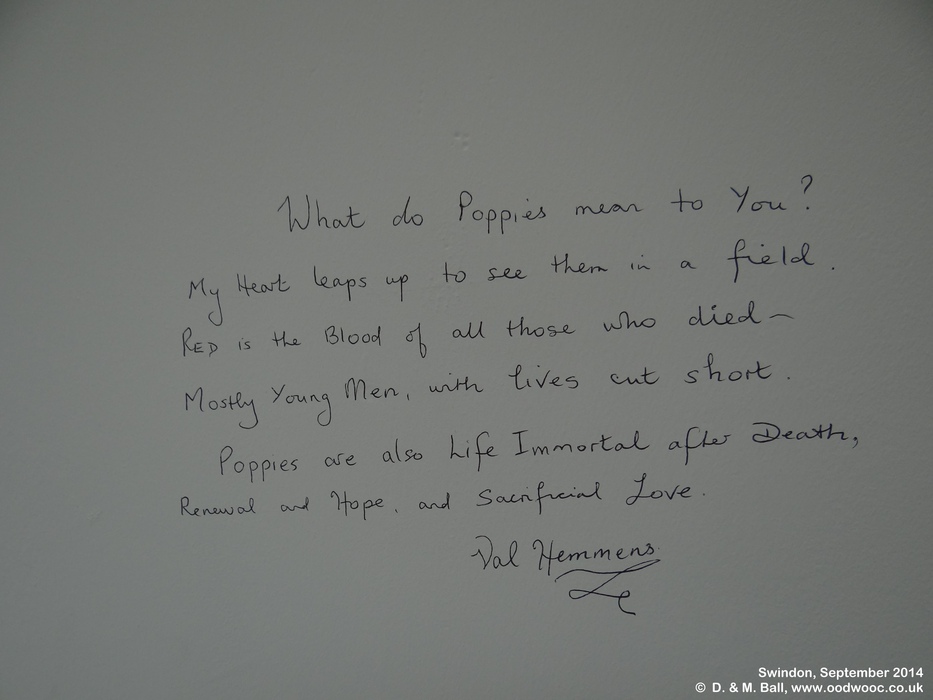 What do Poppies mean to You?
My Heart leaps up to see them in a field.
RED is the Blood of all those who died –
Mostly Young Men, with lives cut short.
Poppies are also Life Immortal after Death,
Renewal and Hope, and Sacrificial Love.
Val Hemmens
Swindon, September 2014
© D. & M. Ball, www.oodwooc.co.uk